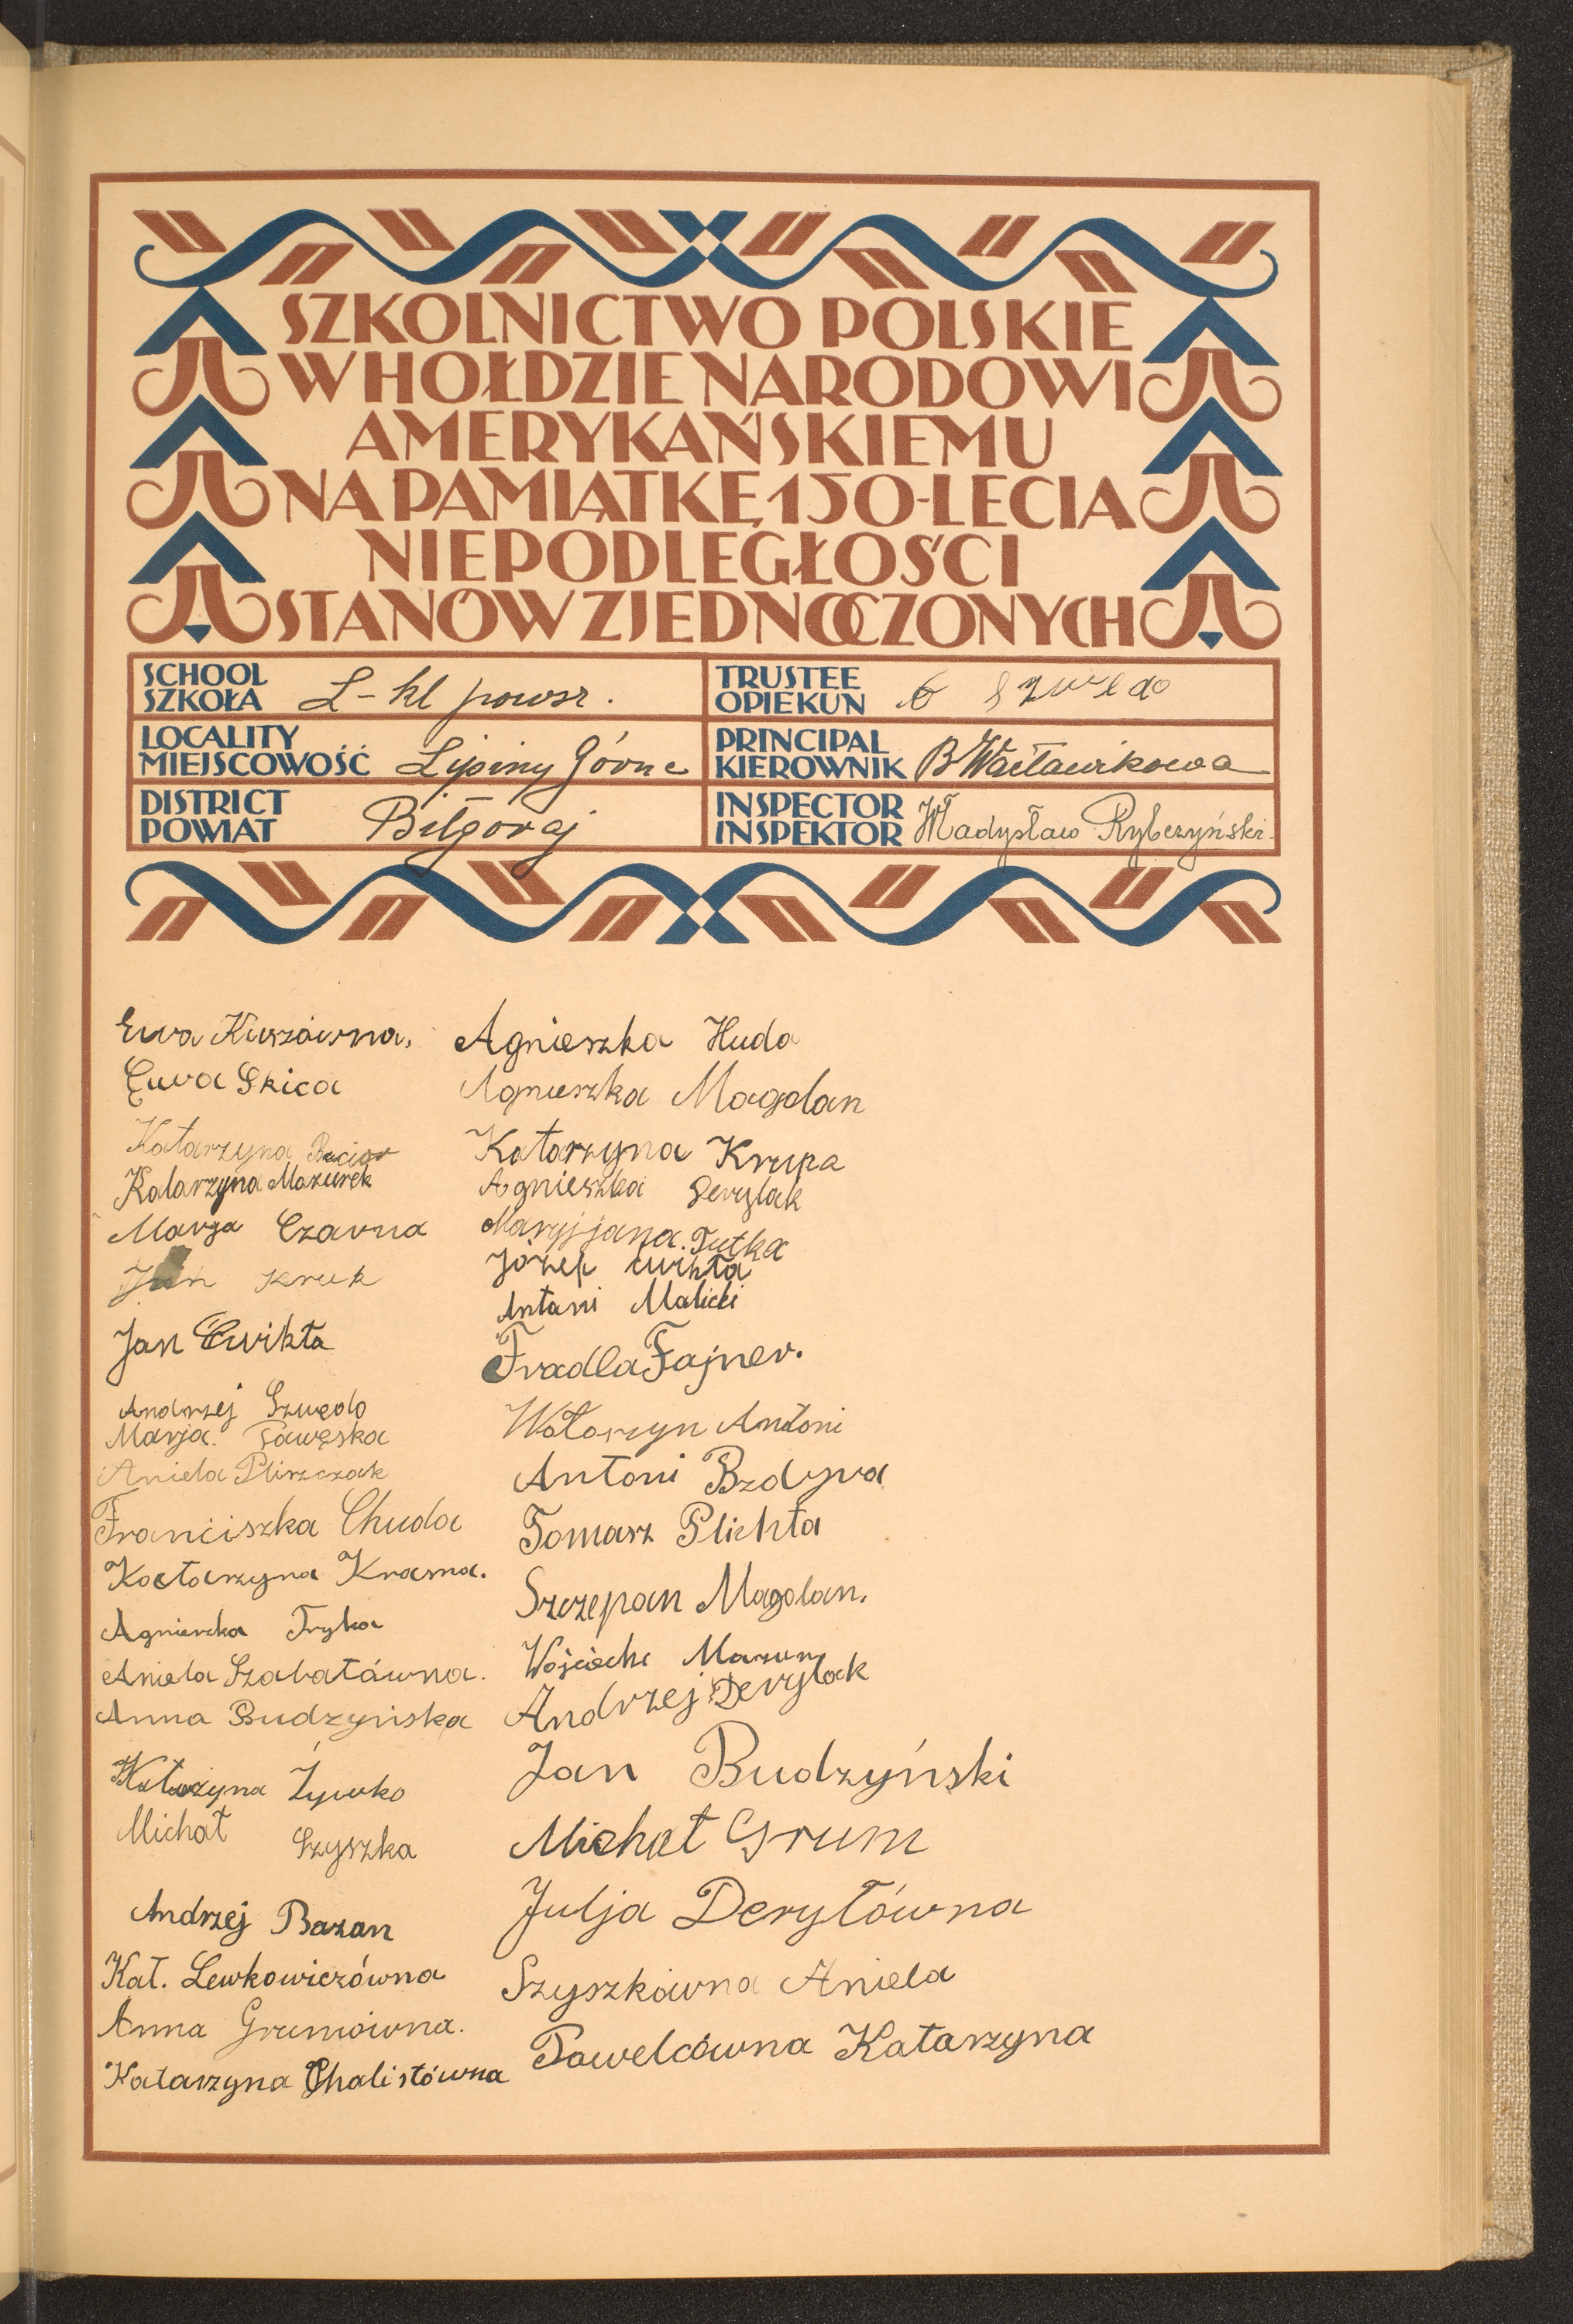 SZKOLNICTWO POLSKIE
W HOŁDZIE NARODOWI
AMERYKAŃSKIEMU
NA PAMIĄTKĘ 150-LECIA
NIEPODLEGŁOŚCI
STANÓW ZJEDNOCZONYCH
SCHOOL
SZKOŁA
kl powsz.
TRUSTEE
OPIEKUN
LOCALITY
MIEJSCOWOŚĆ
Lipiny Górne
PRINCIPAL
KIEROWNIK
B Wacławikowa
DISTRICT
POWIAT
Biłgoraj
INSPECTOR
INSPEKTOR
Władysław Rybczyński.
Ewa Kuszówna.
Ewa Skica
Katarzyna
Katarzyna Mazurek
Marja Czarna
Jan Kruk
Jan Ćwikła
Andrzej Szwędo
Marja.
Aniela Pliszczak
Franciszka Chuda
Katarzyna Krasna.
Agnieszka Tryka
Aniela Szabatówna.
Anna Budzyńska
Katarzyna Żywko
Michał Szyszka
Andrzej Bazan
Kat. Lewkowiczówna
Anna Grumówna.
Katarzyna Chalistówna
Agnieszka Huda
Agnieszka Magdan
Katarzyna Krupa
Agnieszka Derylak
Maryjjana. Tutka
Józef ćwikła
Antoni Malicki
Fradla Fajner.
Wołoszyn Antoni
Antoni Bzdyra
Tomasz Plichta
Szczepan Magdan.
Wojciech Mazur
Andrzej Derylak
Jan Budzyński
Michał Grum
Julja Deryłówna
Szyszkówna Aniela
Pawelcówna Katarzyna